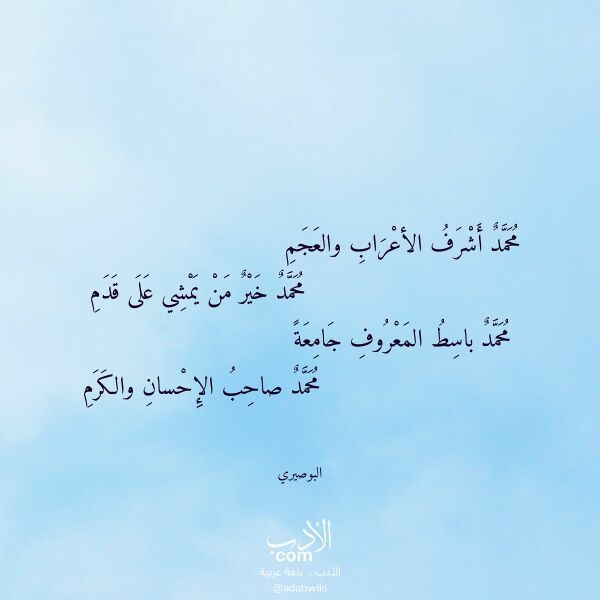 مُحَمَّدٌ أَشْرَفُ الأعْرَابِ والعَجَمِ
مُحَمَّدٌ خَيْرٌ مَنْ يَمْشِي عَلَى قَدَمِ
مُحَمَّدٌ باسِطُ المَعْرُوفِ جَامِعَةً
مُحَمَّدٌ صاحِبُ الإِحْسانِ والكَرَمِ
البوصيري
الأدب
com
الأدب .. بلغة عربية
@adabwiki